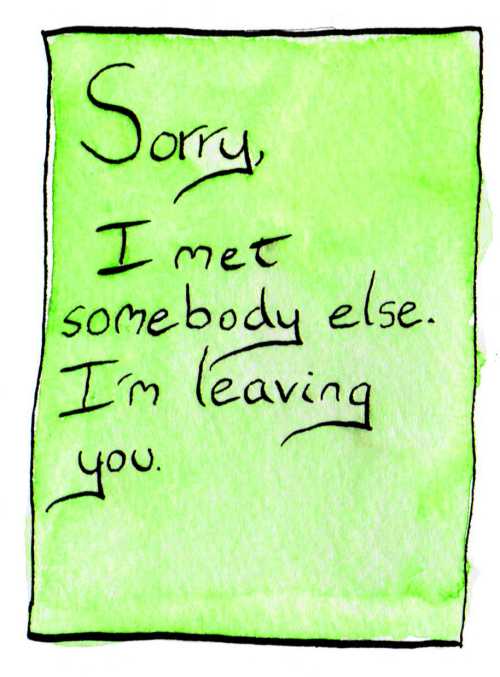 Sorry,
I met
somebody else.
I'm leaving
you.